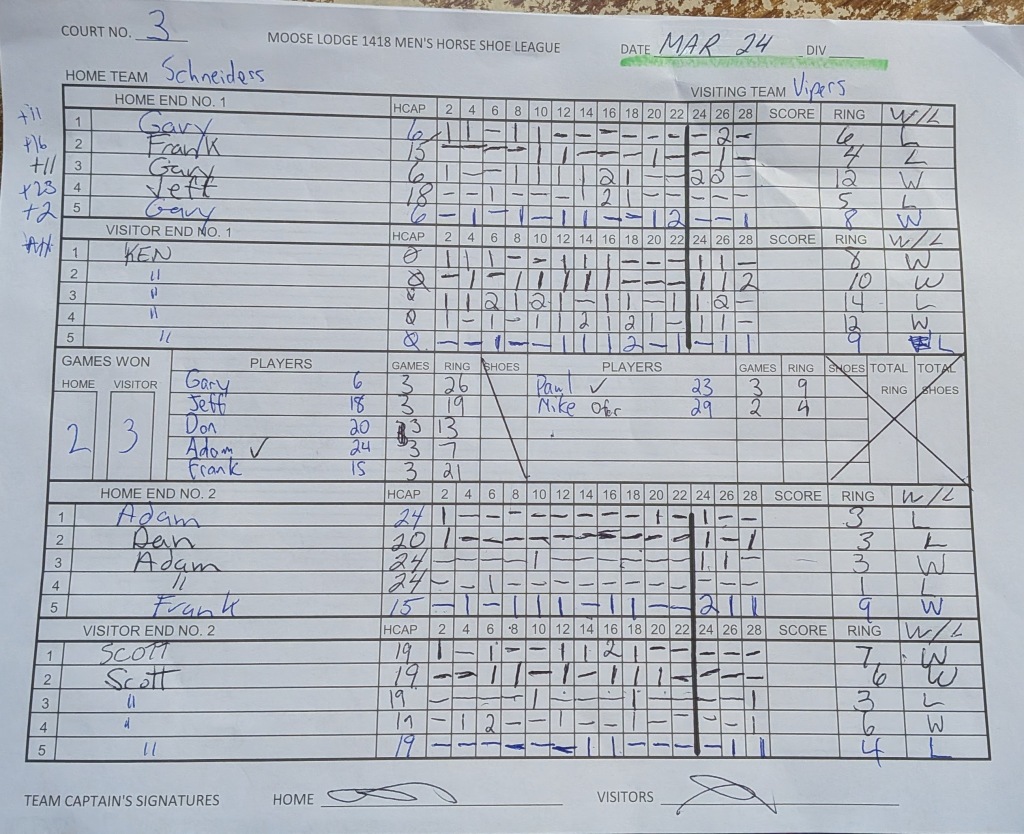 COURT NO. 3 MOOSE LODGE 1418 MEN'S HORSE SHOE LEAGUE DATE MAR 24 DIV
HOME TEAM Schneiders VISITING TEAM Vipers
HOME END NO. 1 HCAP 2 4 6 8 10 12 14 16 18 20 22 24 26 28 SCORE RING W/L
+11 1 Gary 6 1 1 - 1 1 - - - - - - - 2 - 6 L
+16 2 Frank 15 - - - - 1 1 - - - 1 - - 1 - 4 L
+11 3 Gary 6 1 - - 1 1 1 1 2 1 - - 2 2 - 12 W
+23 4 Jeff 18 - - 1 - - - 1 2 1 - - - - - 5 L
+2 5 Gary 6 - 1 - 1 - 1 1 - - 1 2 - - 1 8 W
VISITOR END NO. 1 HCAP 2 4 6 8 10 12 14 16 18 20 22 24 26 28 SCORE RING W/L
1 KEN 0 1 1 1 - - 1 1 1 - - - 1 1 - 8 W
2 " 0 - 1 - 1 1 1 1 1 - - - 1 1 2 10 W
3 " 0 1 1 2 1 2 1 - 1 1 - 1 1 2 - 14 L
4 " 0 1 - 1 - 1 1 2 1 2 1 - 1 1 - 12 W
5 " 0 - - 1 - - 1 1 1 2 - 1 - 1 1 9 L
GAMES WON PLAYERS GAMES RING SHOES PLAYERS GAMES RING SHOES TOTAL RING TOTAL SHOES
HOME VISITOR
2 3
Gary 6 3 26 Paul ✓ 23 3 9
Jeff 18 3 19 Mike Ofer 29 2 4
Don 20 3 13
Adam ✓ 24 3 7
Frank 15 3 21
HOME END NO. 2 HCAP 2 4 6 8 10 12 14 16 18 20 22 24 26 28 SCORE RING W/L
1 Adam 24 1 - - - - - - - - 1 - 1 - - 3 L
2 Dan 20 1 - - - - - - - - - - 1 - 1 3 L
3 Adam 24 - - - - 1 - - - - - - 1 1 - 3 W
4 " 24 - - 1 - - - - - - - - - - - 1 L
5 Frank 15 - 1 - 1 1 1 - 1 1 - - 2 1 1 9 W
VISITOR END NO. 2 HCAP 2 4 6 8 10 12 14 16 18 20 22 24 26 28 SCORE RING W/L
1 SCOTT 19 1 - 1 - - 1 1 2 1 - - - - - 7 W
2 Scott 19 - - 1 1 - 1 - 1 1 1 - - - - 6 W
3 " 19 - - - - 1 - - - 1 - - - - 1 3 L
4 " 19 - 1 2 - - 1 - - 1 - - - - 1 6 W
5 " 19 - - - - - - 1 1 - - - - 1 1 4 L
TEAM CAPTAIN'S SIGNATURES HOME VISITORS